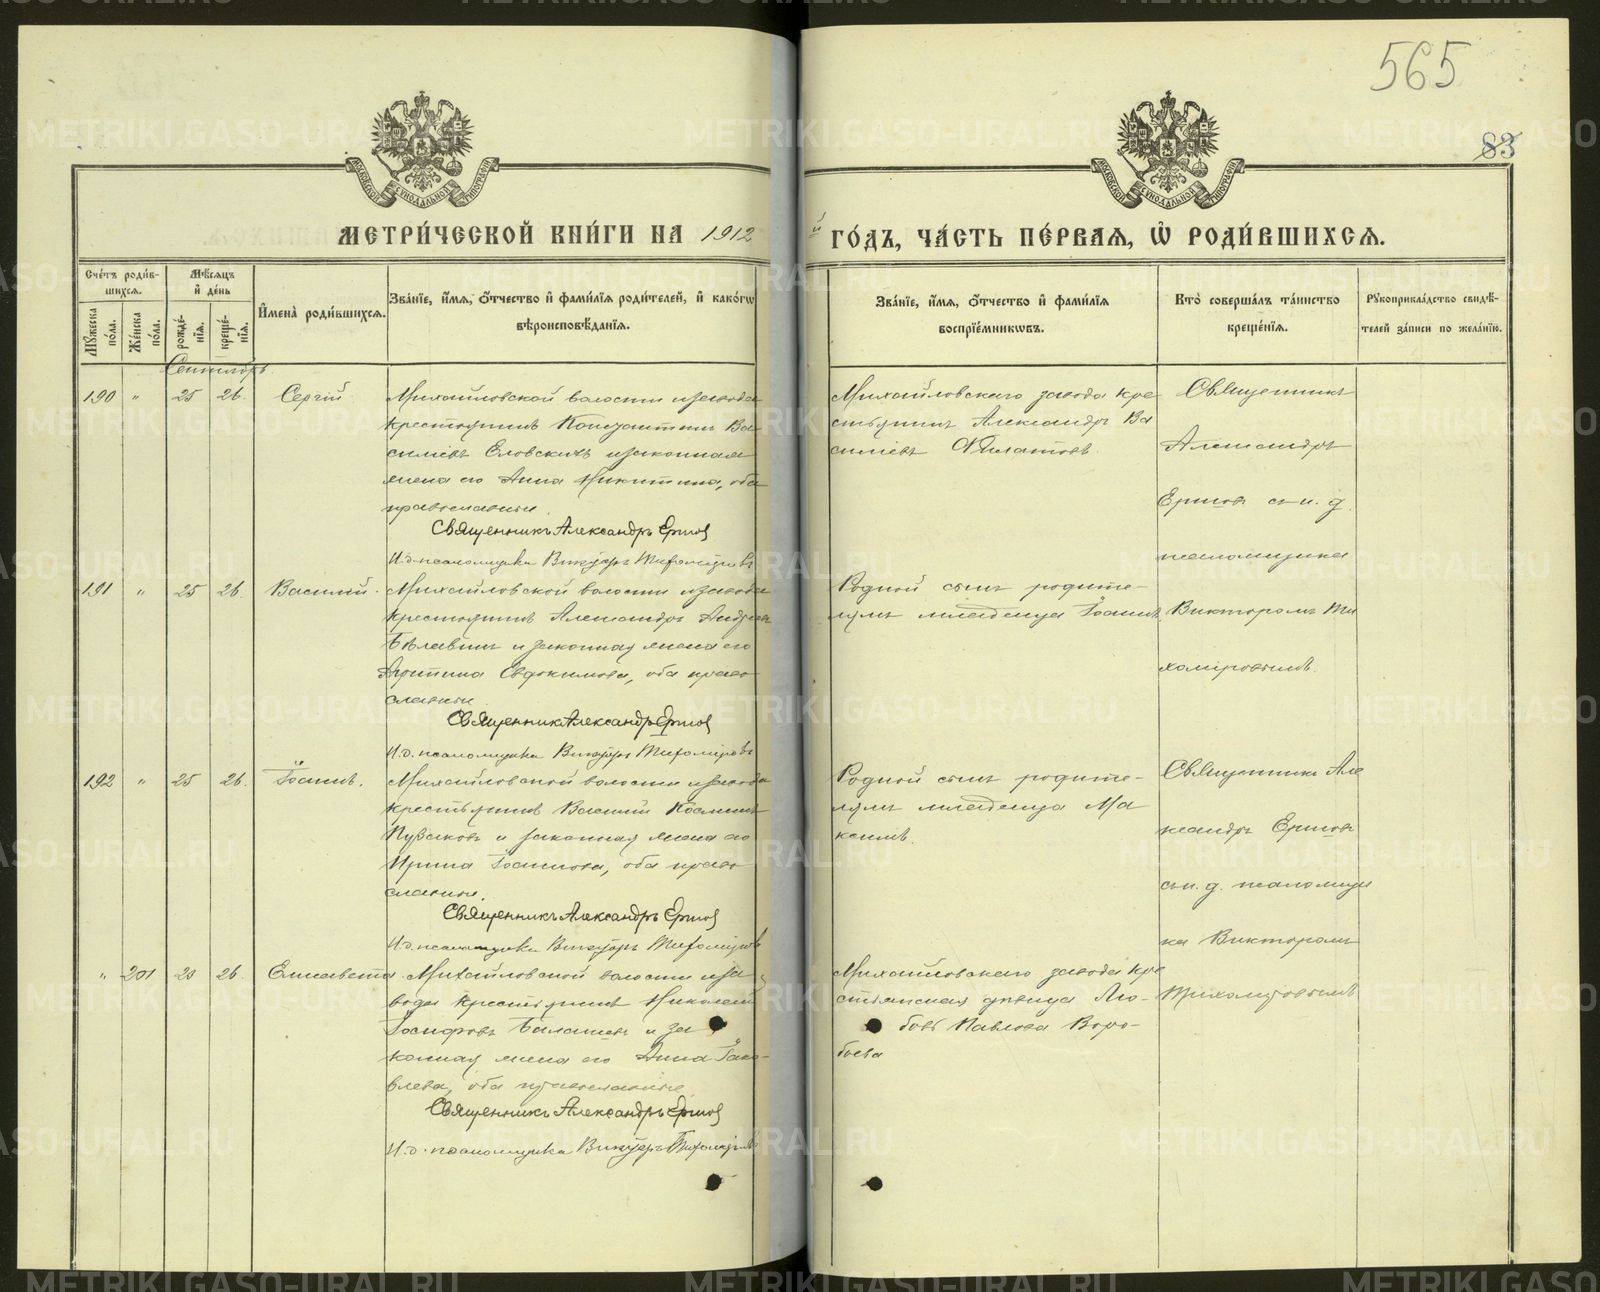 565
83
МЕТРИ́ЧЕСКОЙ КНИ́ГИ НА 1912 й ГО́ДЪ, ЧА́СТЬ ПЕ́РВАЯ, Ѡ҆ РОДИ́ВШИХСЯ.
Сче́тъ роди́в-
шихся.
Мѣ́сяцъ
и҆ де́нь
Му́жеска по́ла.
Же́нска по́ла.
рожде́-
нїя.
креще́-
нїя.
И҆мена̀ роди́вшихся.
Зва́нїе, и҆́мя, ѻ҆́тчество и҆ фами́лїя роди́телей, и҆ како́гѡ
вѣроисповѣ́данїя.
Зва́нїе, и҆́мя, ѻ҆́тчество и҆ фами́лїя
воспрїе́мникѡвъ.
Кто̀ соверша́лъ та́инство
креще́нїя.
Рꙋкоприкла́дство свидѣ́-
телей за́писи по жела́нїю.
Сентябрь
190 " 25 26. Сергій
Михайловской волости и завода
крестьянинъ Константинъ Ва-
сильевъ Еловскихъ и законная
жена его Анна Никитина, оба
православные.
Священникъ Александръ Ершов
И. д. псаломщика Викторъ Тихомировъ
Михайловскаго завода кре
стьянинъ Александръ Ва
сильевъ Филатовъ.
Священникъ
Александръ
Ершовъ съ и. д.
псаломщика
Викторомъ Ти
хомировымъ.
191 " 25 26 Василій.
Михайловской волости и завода
крестьянинъ Александръ Андреевъ
и законная жена его
Евдокимова, оба право-
славные
Священник Александръ Ершов
И. д. псаломщика Викторъ Тихомировъ
Родной сынъ родите-
лямъ младенца Іоаннъ
192 " 25 26. Іоаннъ.
Михайловской волости и завода
крестьянинъ Василій Козминъ
Пузыковъ и законная жена его
Ирина Іоаннова, оба право
славные.
Священникъ Александръ Ершов
И. д. псаломщика Викторъ Тихомировъ
Родной сынъ родите-
лямъ младенца Ма
ксимъ.
Священникъ Але
ксандръ Ершовъ
съ и. д. псаломщи
ка Викторомъ
Тихомировымъ
" 201 23 26. Елисавета
Михайловской волости и за
вода крестьянинъ Николай
Іосифовъ Балашевъ и за
конная жена его Анна Іако-
влева, оба православные
Священникъ Александръ Ершов
И. д. псаломщика Викторъ Тихомировъ
Михайловскаго завода кре
стьянская дѣвица Лю-
бовь Павлова Воро-
бьева
METRIKI.GASO-URAL.RU